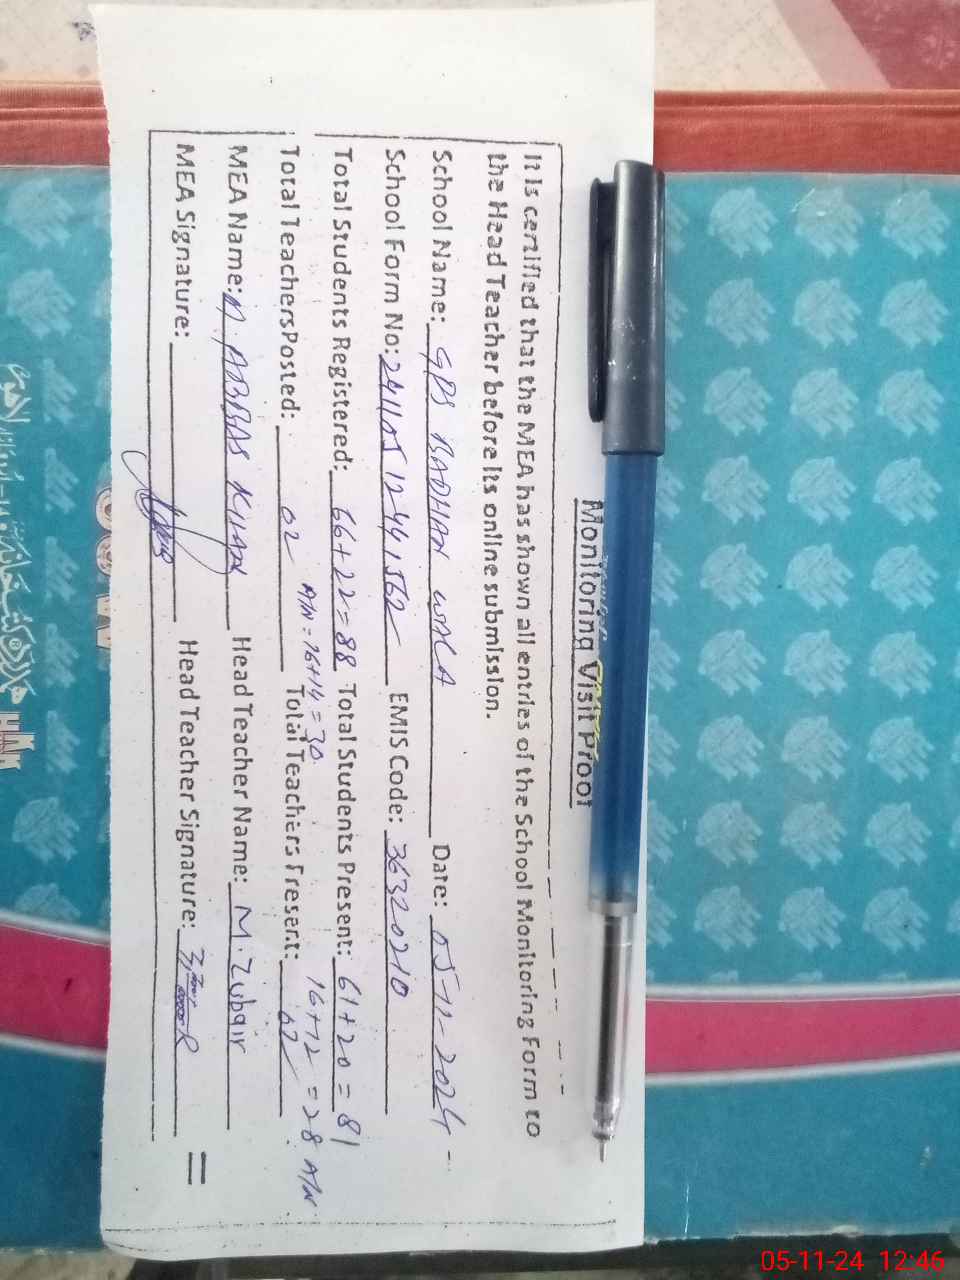 Monitoring Visit Proof
It is certified that the MEA has shown all entries of the School Monitoring Form to
the Head Teacher before its online submission.
School Name: GPS BADHAN WALA Date: 05-11-2024
School Form No: EMIS Code: 36320210
Total Students Registered: 66+22=88 Total Students Present: 61+20=81
A/N=16+14=30 16+12=28 A/N
Total Teachers Posted: 02 Total Teachers Present: 02
MEA Name: M ABBAS KHAN Head Teacher Name: M. Zubair
MEA Signature: Head Teacher Signature:
05-11-24 12:46